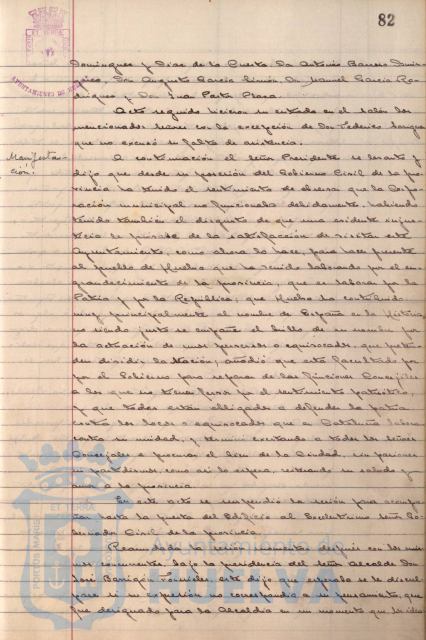 82
Dominguez y Diaz de la Puerta, Dn Antonio Barrero
Dn Augusto Garcia Simón, Dn Manuel Garcia Ro-
driguez y Don Juan Plaza.
Acto seguido hicieron su entrada en el salón los
mencionados con la excepción de Don Federico
que no excusó su falta de asistencia.
Manifesta-
ción.
A continuación el señor Presidente se levanta y
dijo que desde su posesión del Gobierno Civil de la pro-
vincia ha tenido el sentimiento de observar que la Corpo-
ración municipal no funcionaba debidamente, habiendo
tenido también el disgusto de que una evidente
le privase de la satisfacción de visitar este
Ayuntamiento, como ahora lo hace, para hacer presente
al pueblo de Huelva que ha venido laborando por el en-
grandecimiento de la provincia, que es laborar por la
Patria y por la República, que Huelva ha contribuido
muy principalmente al nombre de España en la Historia,
no siendo justo se empañe el brillo de su nombre por
la actuación de unos perversos o equivocados, que preten-
den dividir la Nación, añadió que está facultado por
por el Gobierno para separar de las funciones Concejiles
a los que no tienen fervor por el sentimiento patriótico,
y que todos están obligados a defender la patria
contra los locos o equivocados que a Cataluña
contra su unidad, y terminó exhortando a todos los señores
Concejales a procurar el bien de la Ciudad, sin pasiones
ni partidismos, como así lo espera, reiterando su saludo y
a la provincia.
En este acto se suspendió la sesión para acompa-
ñar hasta la puerta del Edificio al Excelentísimo señor Go-
bernador Civil de la provincia.
Reanudada la sesión minutos después con los mis-
mos concurrentes, bajo la presidencia del señor Alcalde Don
José Barrigón, este dijo que esperaba se le discul-
pase si su expresión no correspondía a su pensamiento, que
fue designado para la Alcaldía en un momento que los
Ayuntamiento de
HUELVA